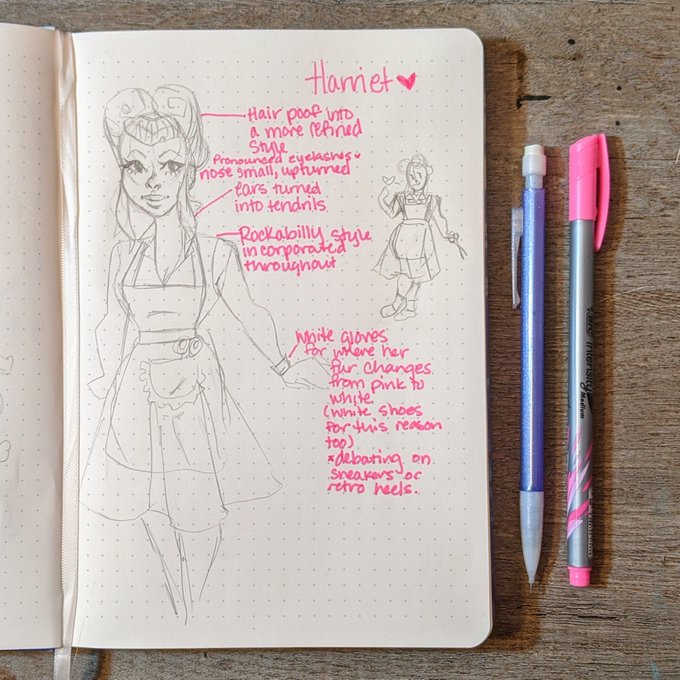 Harriet ♥
Hair poof into
a more refined
style
Pronounced eyelashes
nose small, upturned
Ears turned
into tendrils
Rockabilly style
incorporated
throughout
White gloves
for where her
fur changes
from pink to
white
(white shoes
for this reason
too)
*debating on
sneakers or
retro heels.
intensity
Medium